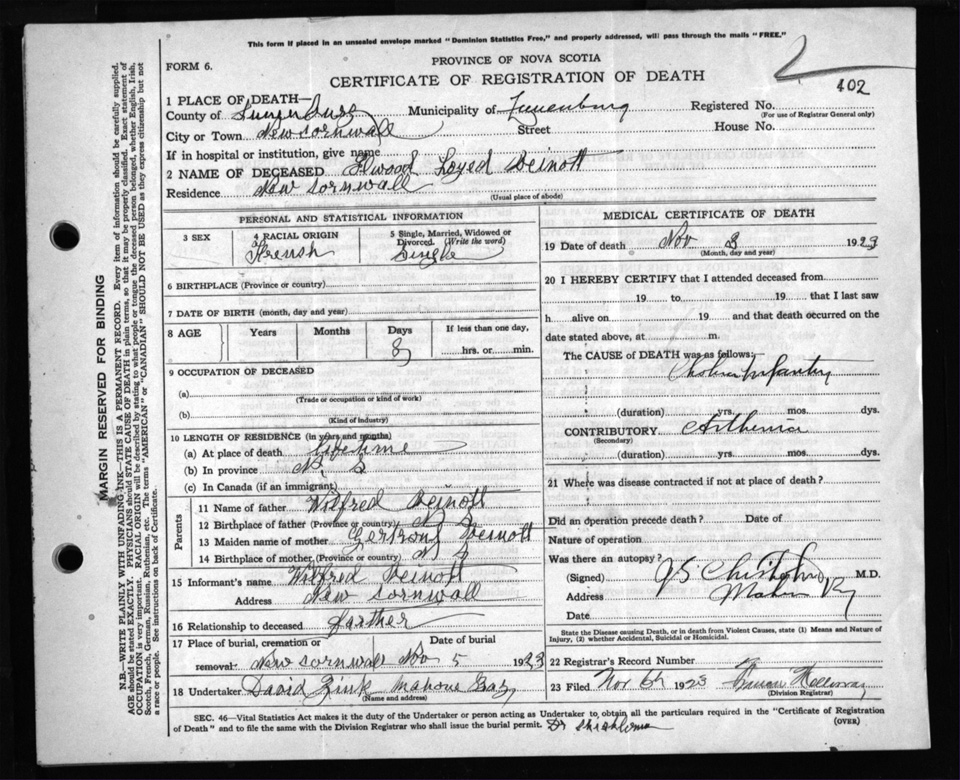 This form if placed in an unsealed envelope marked "Dominion Statistics Free," and properly addressed, will pass through the mails "FREE."
FORM 6.
PROVINCE OF NOVA SCOTIA
CERTIFICATE OF REGISTRATION OF DEATH
402
1 PLACE OF DEATH—
County of Lunenburg Municipality of Lunenburg Registered No.
(For use of Registrar General only)
City or Town New Cornwall Street House No.
If in hospital or institution, give name
2 NAME OF DECEASED Elwood Loyed Deinott
Residence New Cornwall
(Usual place of abode)
PERSONAL AND STATISTICAL INFORMATION
3 SEX
4 RACIAL ORIGIN
French
5 Single, Married, Widowed or Divorced. (Write the word)
Single
6 BIRTHPLACE (Province or country)
7 DATE OF BIRTH (month, day and year)
8 AGE Years Months Days If less than one day,
8 hrs. or min.
9 OCCUPATION OF DECEASED
(a)
(Trade or occupation or kind of work)
(b)
(Kind of industry)
10 LENGTH OF RESIDENCE (in years and months)
(a) At place of death lifetime
(b) In province N S
(c) In Canada (if an immigrant)
Parents
11 Name of father Wilfred Deinott
12 Birthplace of father (Province or country) N S
13 Maiden name of mother Deinott
14 Birthplace of mother (Province or country) N S
15 Informant's name Wilfred Deinott
Address New Cornwall
16 Relationship to deceased farther
17 Place of burial, cremation or removal Date of burial
New Cornwall Nov 5 1923
18 Undertaker David Zink Mahone Bay
(Name and address)
MEDICAL CERTIFICATE OF DEATH
19 Date of death Nov 3 1923
(Month, day and year)
20 I HEREBY CERTIFY that I attended deceased from
19 to 19 that I last saw
h alive on 19 and that death occurred on the
date stated above, at m.
The CAUSE of DEATH was as follows:
Cholera Infantum
(duration) yrs. mos. dys.
CONTRIBUTORY Asthenia
(Secondary)
(duration) yrs. mos. dys.
21 Where was disease contracted if not at place of death?
Did an operation precede death? Date of
Nature of operation
Was there an autopsy?
(Signed) Chisholm M.D.
Address Mahone Bay
Date
State the Disease causing Death, or in death from Violent Causes, state (1) Means and Nature of Injury, (2) whether Accidental, Suicidal or Homicidal.
22 Registrar's Record Number
23 Filed Nov 6th 1923
(Division Registrar)
SEC. 46—Vital Statistics Act makes it the duty of the Undertaker or person acting as Undertaker to obtain all the particulars required in the "Certificate of Registration
of Death" and to file the same with the Division Registrar who shall issue the burial permit. Dr Chisholm
(OVER)
MARGIN RESERVED FOR BINDING
N.B.—WRITE PLAINLY WITH UNFADING INK—THIS IS A PERMANENT RECORD. Every item of information should be carefully supplied.
AGE should be stated EXACTLY. PHYSICIANS should STATE CAUSE OF DEATH in plain terms, so that it may be properly classified. Exact statement of
OCCUPATION is very important. RACIAL ORIGIN will be described by stating to what people or tongue the deceased person belonged, whether English, Irish,
Scotch, French, German, Russian, Ruthenian, etc. The terms "AMERICAN" or "CANADIAN" SHOULD NOT BE USED as they express citizenship but not
a race or people. See instructions on back of Certificate.